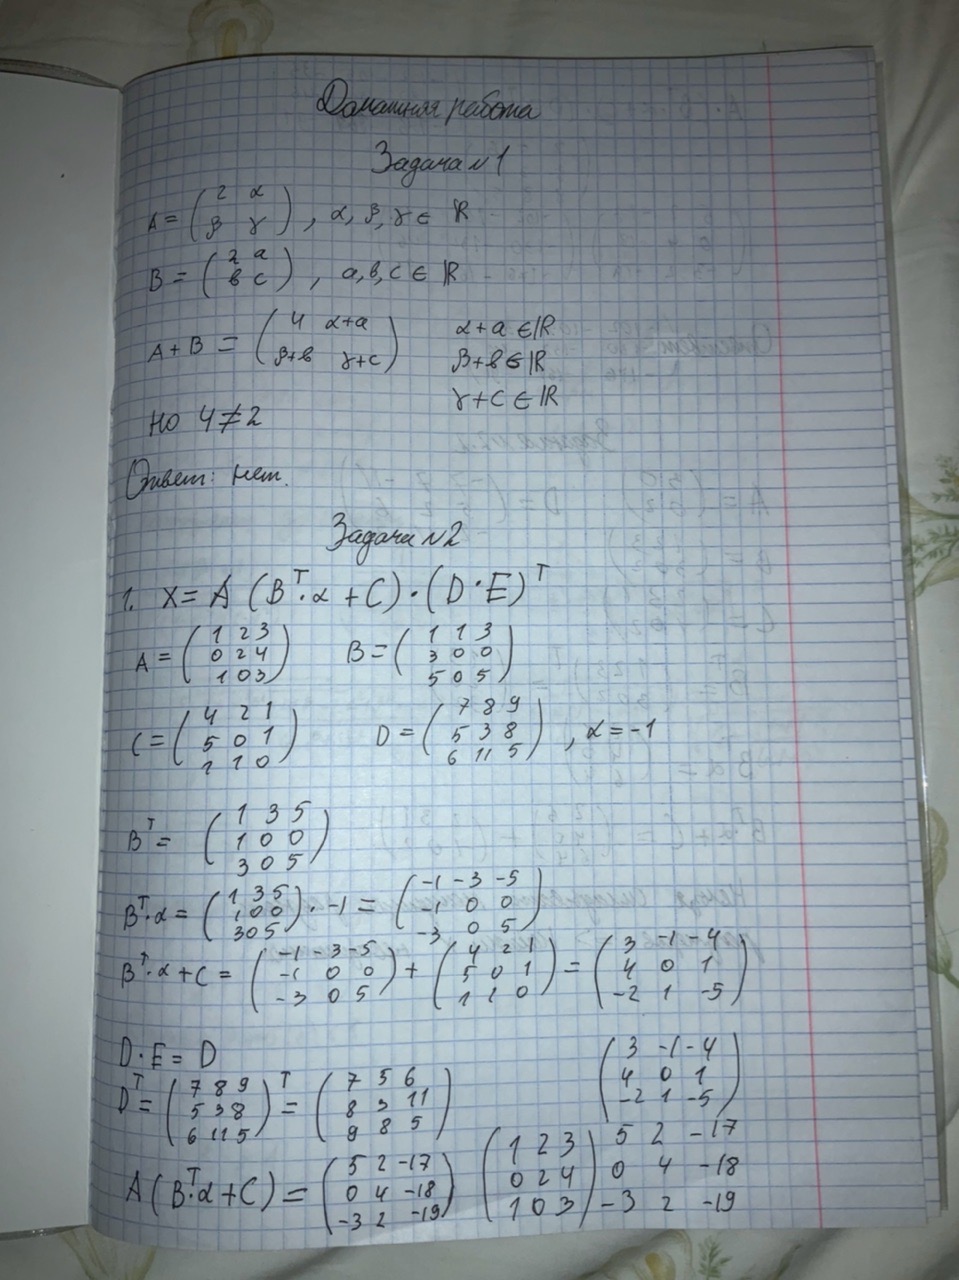 Домашняя работа
Задача №1
A = (2 α; β γ), α, β, γ ∈ ℝ
B = (2 a; в c), a, в, c ∈ ℝ
A + B = (4 α+a; β+в γ+c) α+a ∈ ℝ
β+в ∈ ℝ
γ+c ∈ ℝ
Но 4 ≠ 2
Ответ: нет.
Задача №2
1. X = A (Bᵀ·α + C)·(D·E)ᵀ
A = (1 2 3; 0 2 4; 1 0 3) B = (1 1 3; 3 0 0; 5 0 5)
C = (4 2 1; 5 0 1; 1 1 0) D = (7 8 9; 5 3 8; 6 11 5), α = -1
Bᵀ = (1 3 5; 1 0 0; 3 0 5)
Bᵀ·α = (1 3 5; 1 0 0; 3 0 5)·-1 = (-1 -3 -5; -1 0 0; -3 0 5)
Bᵀ·α + C = (-1 -3 -5; -1 0 0; -3 0 5) + (4 2 1; 5 0 1; 1 1 0) = (3 -1 -4; 4 0 1; -2 1 -5)
D·E = D
(3 -1 -4; 4 0 1; -2 1 -5)
Dᵀ = (7 8 9; 5 3 8; 6 11 5)ᵀ = (7 5 6; 8 3 11; 9 8 5)
A (Bᵀ·α + C) = (5 2 -17; 0 4 -18; -3 2 -19) (1 2 3; 0 2 4; 1 0 3) 5 2 -17; 0 4 -18; -3 2 -19